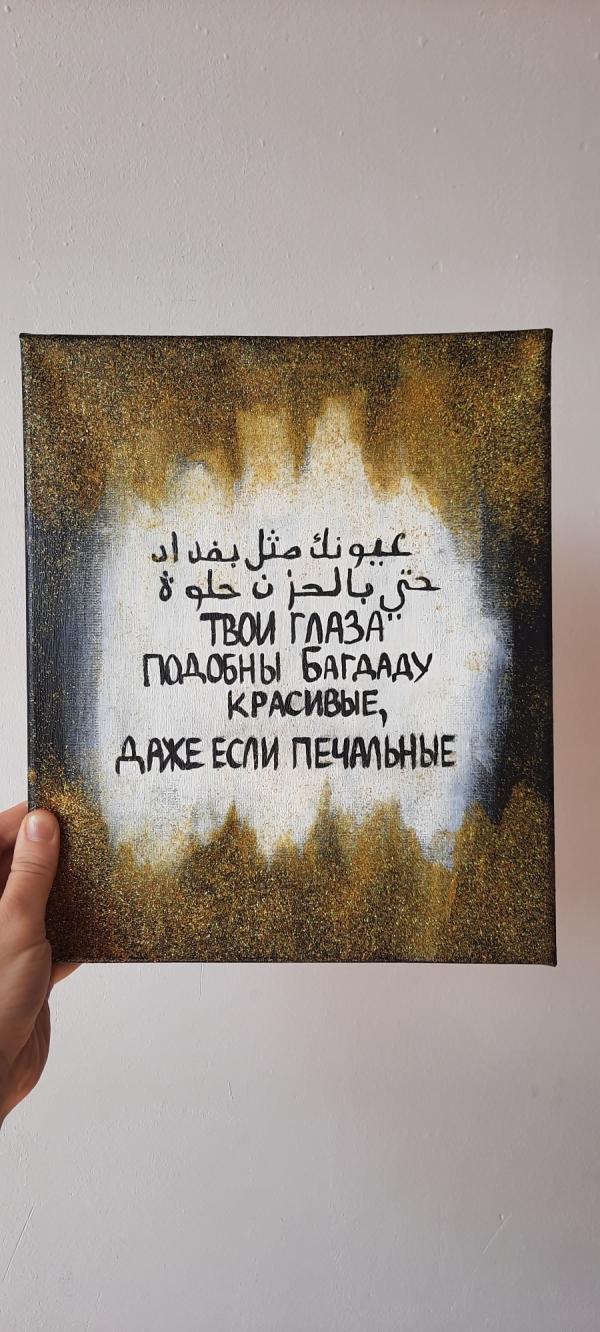 عيونك مثل بغداد
حتي بالحزن حلوة
ТВОИ ГЛАЗА"
ПОДОБНЫ БАГДАДУ
КРАСИВЫЕ,
ДАЖЕ ЕСЛИ ПЕЧАЛЬНЫЕ